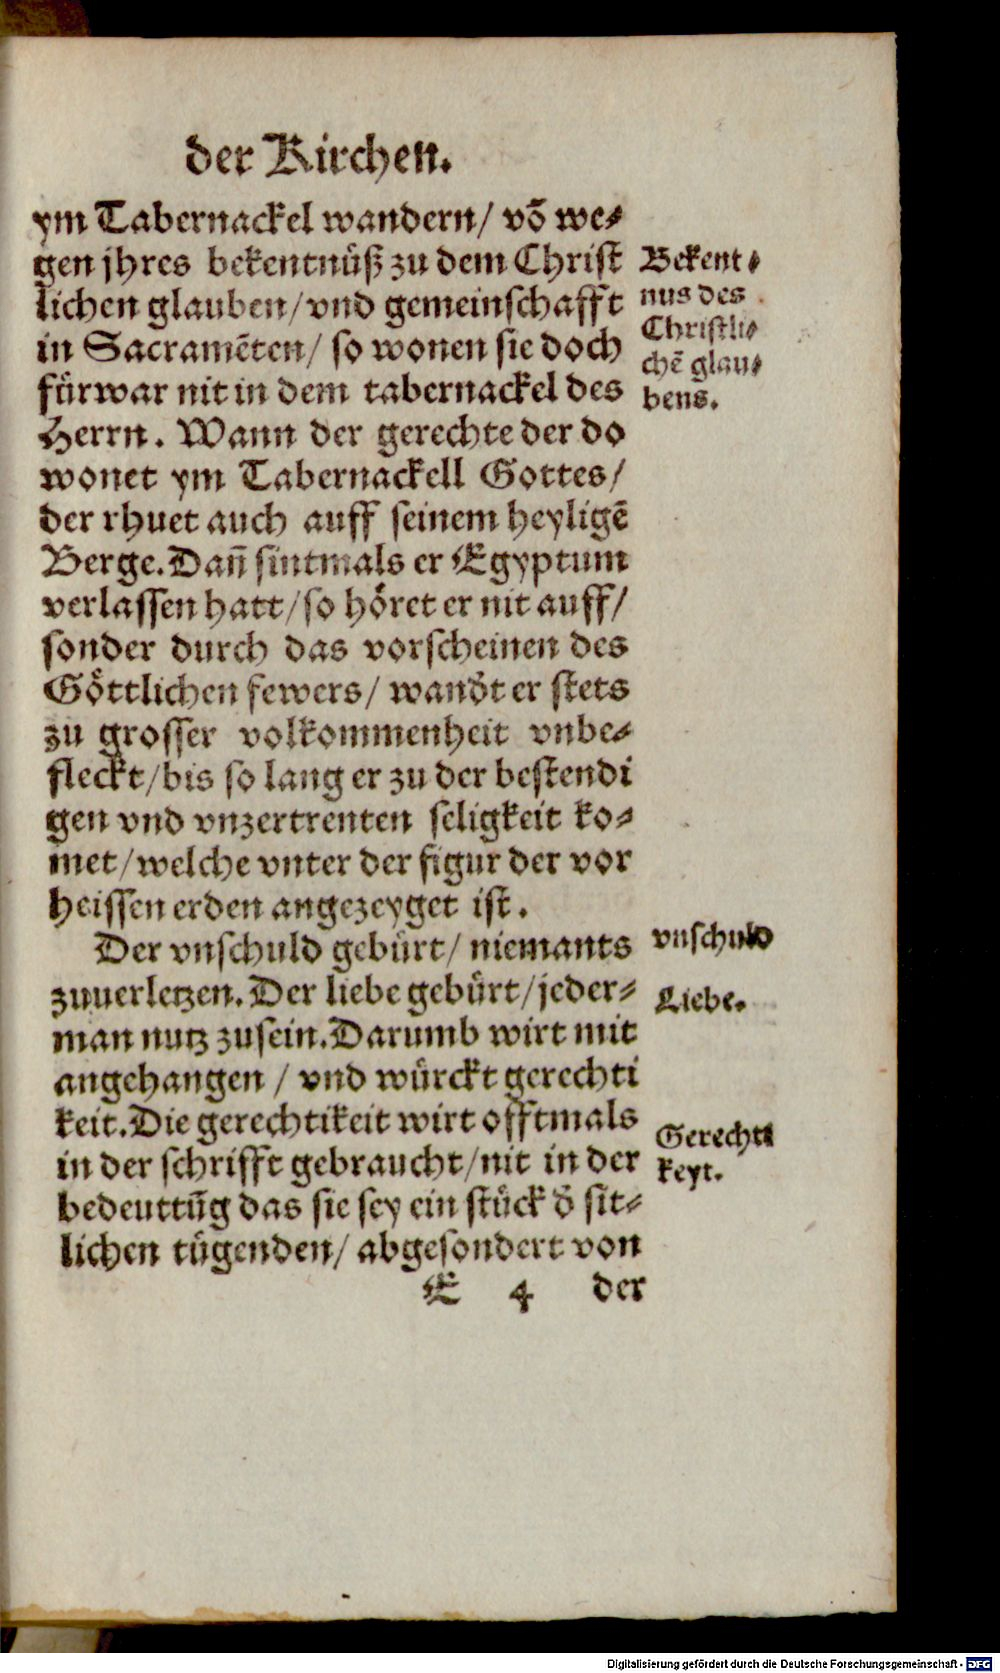 der Kirchen.
ym Tabernackel wandern/ võ we⸗
gen jhres bekentnüß zu dem Christ
lichen glauben/ vnd gemeinschafft
in Sacramẽten/ so wonen sie doch
fürwar nit in dem tabernackel des
Herrn. Wann der gerechte der do
wonet ym Tabernackell Gottes/
der rhuet auch auff seinem heyligẽ
Berge. Dañ sintmals er Egyptum
verlassen hatt/ so höret er nit auff/
sonder durch das vorscheinen des
Göttlichen fewers/ wandt er stets
zu grosser volkommenheit vnbe⸗
fleckt/ bis so lang er zu der bestendi
gen vnd vnzertrenten seligkeit ko⸗
met/ welche vnter der figur der vor
heissen erden angezeyget ist.
Der vnschuld gebürt/ niemants
zuuerletzen. Der liebe gebürt/ jeder⸗
man nutz zusein. Darumb wirt mit
angehangen / vnd würckt gerechti
keit. Die gerechtikeit wirt offtmals
in der schrifft gebraucht/ nit in der
bedeuttũg das sie sey ein stück d̕ sit⸗
lichen tügenden/ abgesondert von
E 4 der
Bekent⸗
nus des
Christli⸗
chẽ glau⸗
bens.
vnschuld
Liebe.
Gerechti
keyt.
Digitalisierung gefördert durch die Deutsche Forschungsgemeinschaft - DFG